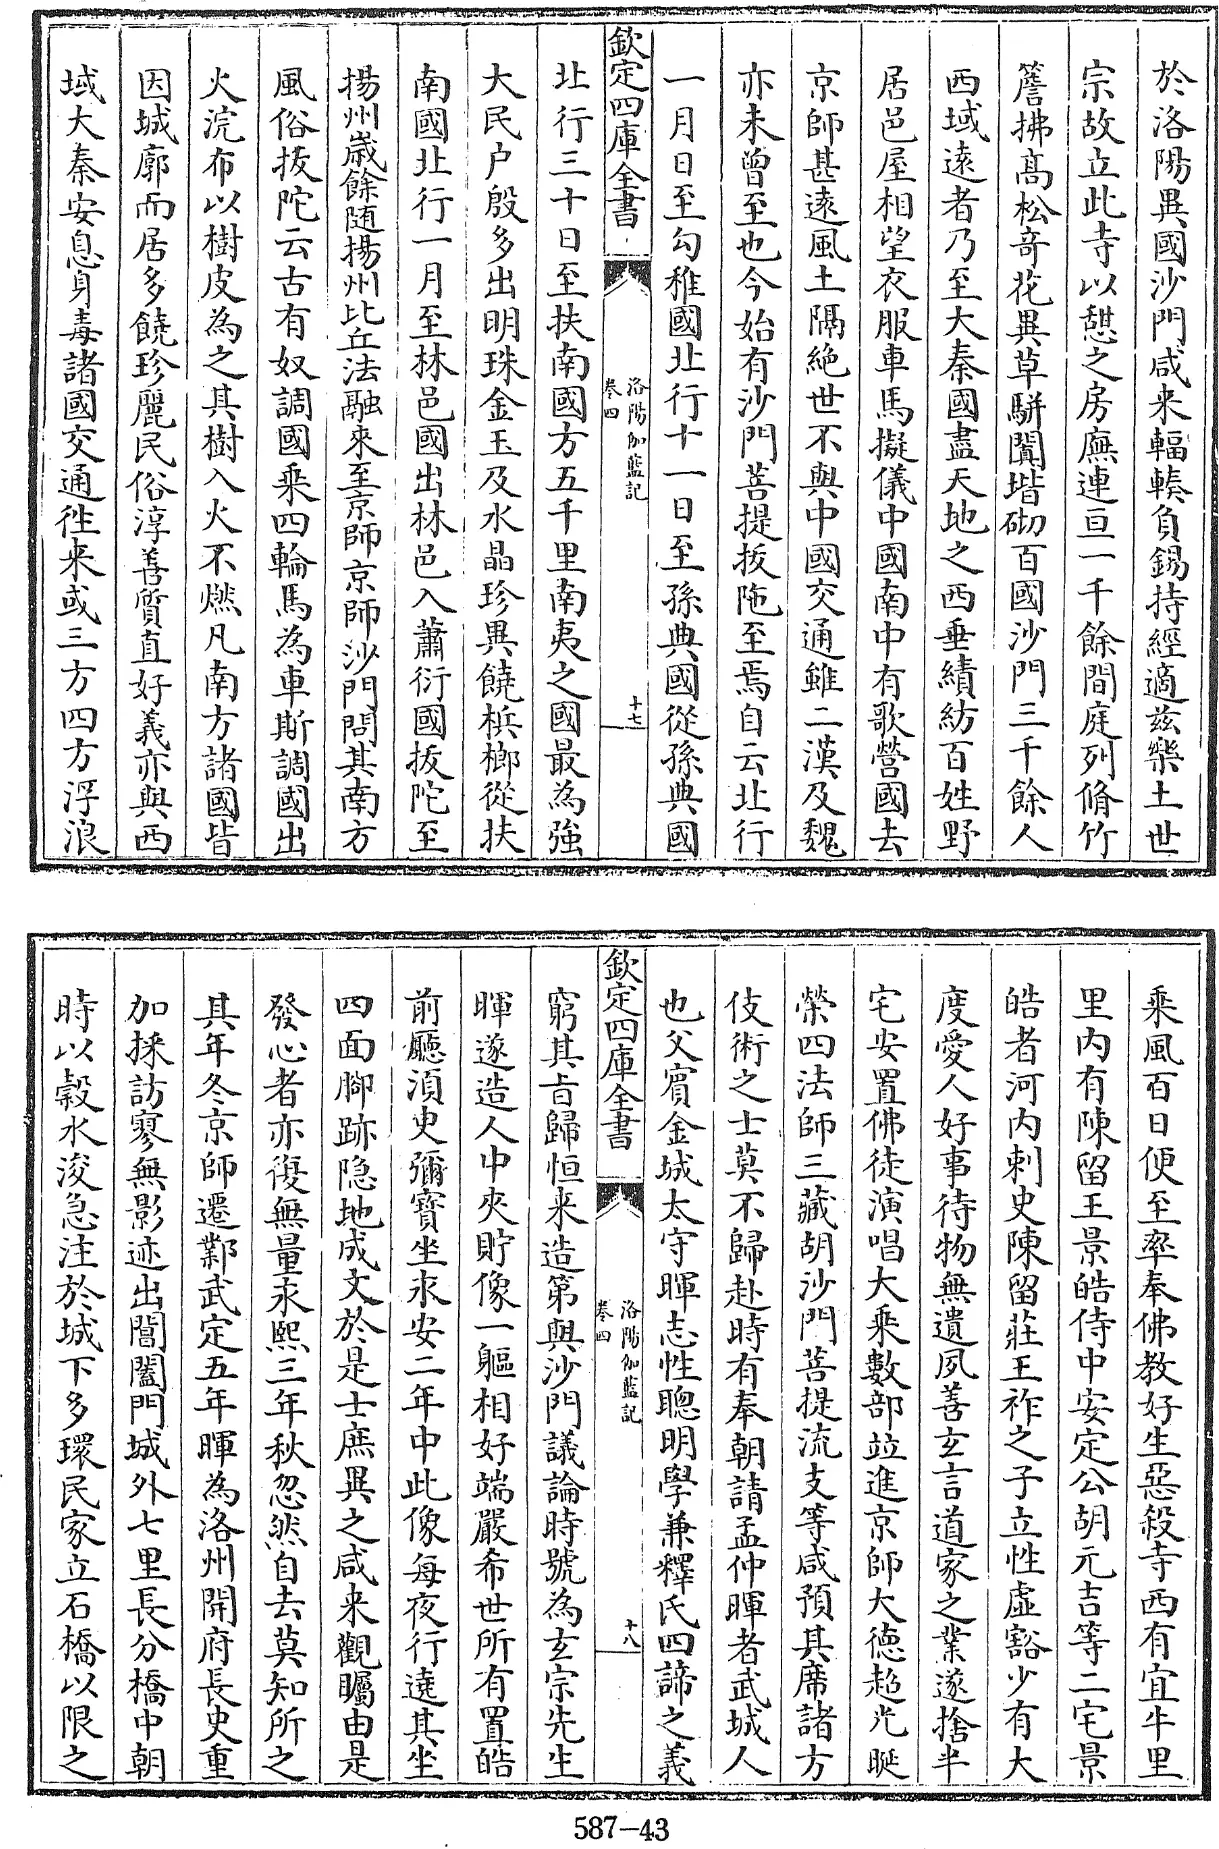 於洛陽異國沙門咸来輻輳負錫持經適兹樂土世
宗故立此寺以憇之房廡連亘一千餘間庭列脩竹
簷拂髙松竒花異草駢闐堦砌百國沙門三千餘人
西域逺者乃至大秦國盡天地之西垂績紡百姓野
居邑屋相望衣服車馬擬儀中國南中有歌營國去
京師甚逺風土隔絶世不與中國交通雖二漢及魏
亦未曽至也今始有沙門菩提拔陁至焉自云北行
一月日至勾稚國北行十一日至孫典國從孫典國
欽定四庫全書
洛陽伽藍記
卷四
十七
北行三十日至扶南國方五千里南夷之國最為強
大民户殷多出明珠金玉及水晶珍異饒梹榔從扶
南國北行一月至林邑國出林邑入蕭衍國拔陀至
揚州歳餘随揚州比丘法融來至京師京師沙門問其南方
風俗拔陀云古有奴調國乗四輪馬為車斯調國出
火浣布以樹皮為之其樹入火不燃凡南方諸國皆
因城廓而居多饒珍麗民俗淳善質直好義亦與西
域大秦安息身毒諸國交通徃来或三方四方浮浪
乗風百日便至率奉佛教好生惡殺寺西有宜牛里
里内有陳留王景皓侍中安定公胡元吉等二宅景
皓者河内刺史陳留莊王祚之子立性虚豁少有大
度愛人好事待物無遺夙善玄言道家之業遂捨半
宅安置佛徒演唱大乗數部竝進京師大德超光㫼
榮四法師三藏胡沙門菩提流支等咸預其席諸方
伎術之士莫不歸赴時有奉朝請孟仲暉者武城人
也父賔金城太守暉志性聰明學兼釋氏四諦之義
欽定四庫全書
洛陽伽藍記
卷四
十八
窮其㫖歸恒来造第與沙門議論時號為玄宗先生
暉遂造人中夾貯像一軀相好端嚴希世所有置皓
前廳湏㬰彌寳坐永安二年中此像每夜行遶其坐
四面脚跡隐地成文於是士庶異之咸来觀矚由是
發心者亦復無量永熙三年秋忽然自去莫知所之
其年冬京師遷鄴武定五年暉為洛州開府長史重
加採訪寥無影迹出閶闔門城外七里長分橋中朝
時以榖水浚急注於城下多環民家立石橋以限之
587-43